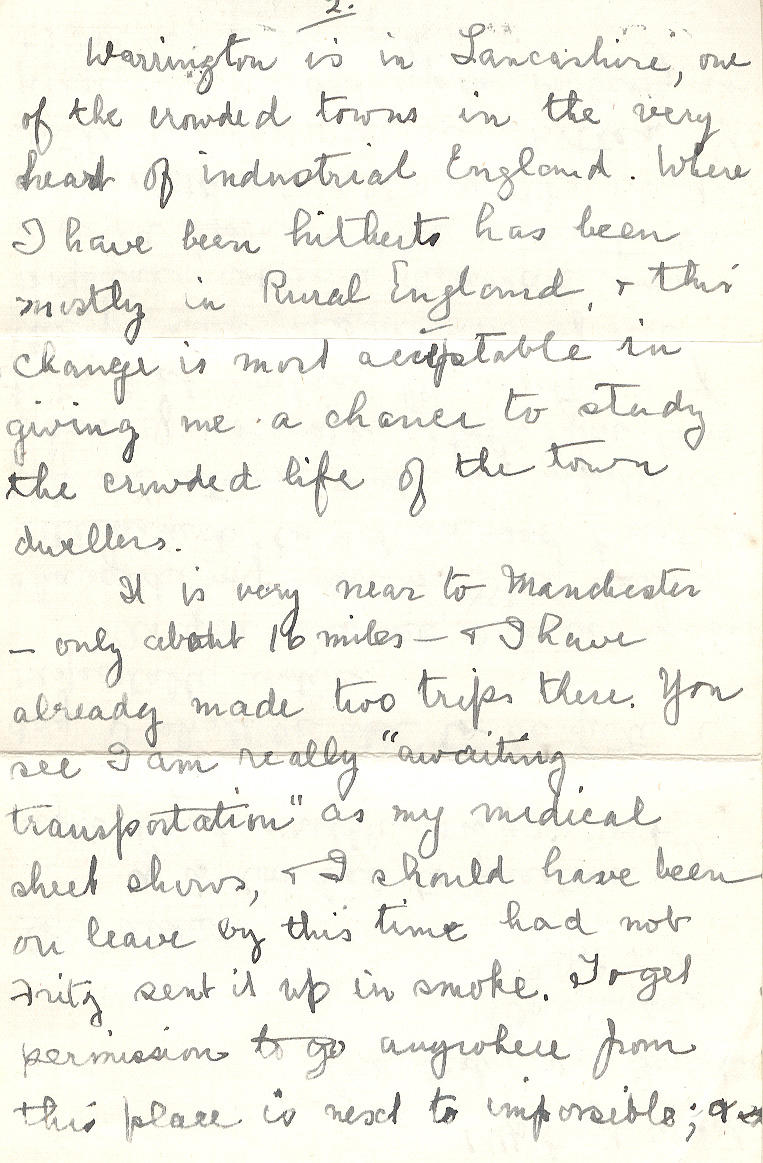 2.
Warrington is in Lancashire, one
of the crowded towns in the very
heart of industrial England. Where
I have been hitherto has been
mostly in Rural England, & this
change is most acceptable in
giving me a chance to study
the crowded life of the town
dwellers.
It is very near to Manchester
— only about 16 miles — & I have
already made two trips there. You
see I am really "awaiting
transportation" as my medical
sheet shows, & I should have been
on leave by this time had not
Fritz sent it up in smoke. To get
permission to go anywhere from
this place is next to impossible;